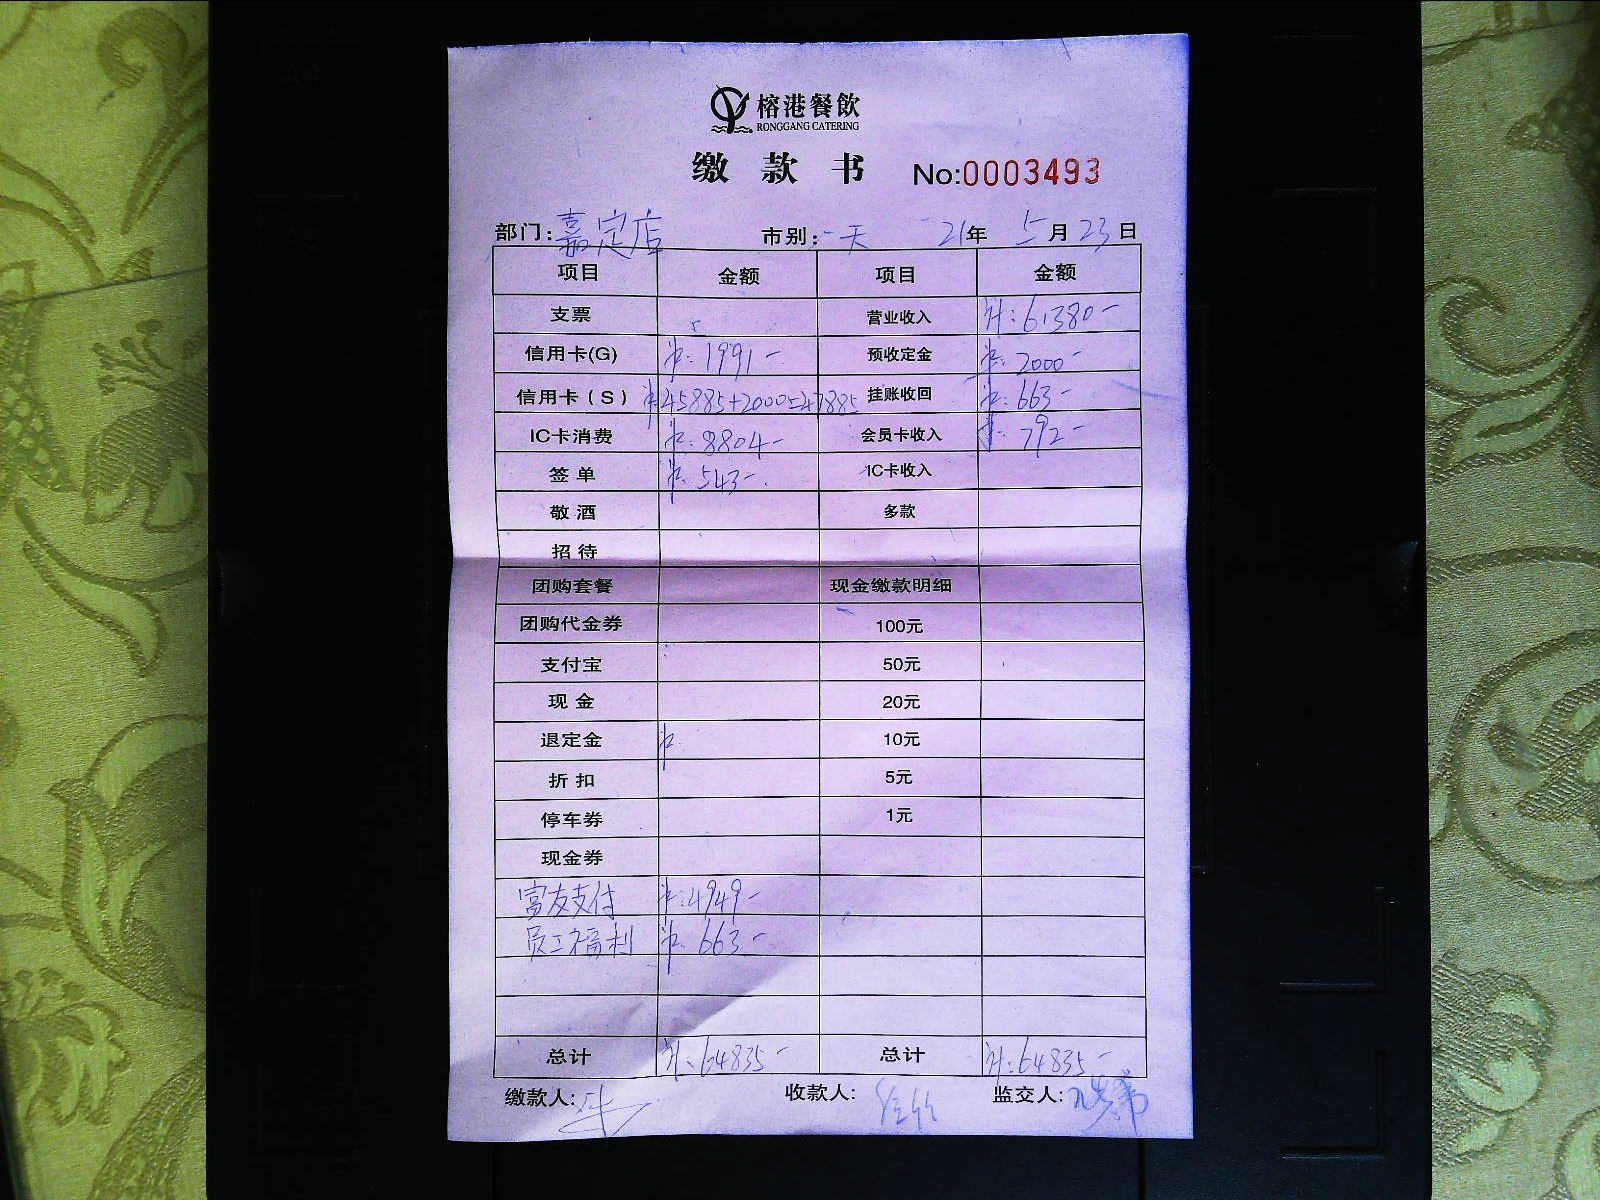 榕港餐飲
RONGGANG CATERING
缴款书 No:0003493
部门:嘉定店 市别:一天 21年 5月23日
项目 金额 项目 金额
支票 营业收入 计:61380-
信用卡(G) 卡:1991- 预收定金 卡:2000-
信用卡(S) 卡:45885+2000=47885 挂账收回 卡:663-
IC卡消费 卡:8804- 会员卡收入 卡:792-
签单 卡:543- IC卡收入
敬酒 多款
招待
团购套餐 现金缴款明细
团购代金券 100元
支付宝 50元
现金 20元
退定金 卡: 10元
折扣 5元
停车券 1元
现金券
富友支付 卡:4949-
员工福利 卡:663-
总计 计:64835- 总计 计:64835-
缴款人: 收款人: 监交人: